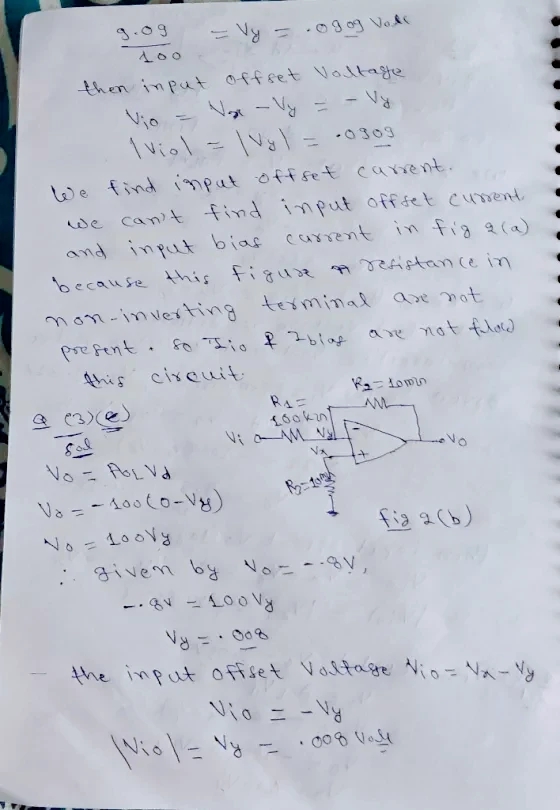 9.09
100
= Vy = .0909 Volt
then input offset Voltage
Vio = Vx - Vy = - Vy
|Vio| = |Vy| = .0909
We find input offset current.
We can't find input offset current
and input bias current in fig 2(a)
because this figure resistance in
non-inverting terminal are not
present. so Iio & Ibias are not flow
this circuit.
Q (3)(c)
Sol
R1 =
100kΩ
R2 = 10mΩ
Vi
Vy
Vx
-
+
Vo
fig 2(b)
Vo = AOL Vd
Vo = -100(0-Vy)
Vo = 100Vy
∴ given by Vo = -.8V,
-.8V = 100Vy
Vy = .008
the input offset Voltage Vio = Vx - Vy
Vio = -Vy
|Vio| = Vy = .008 Volt